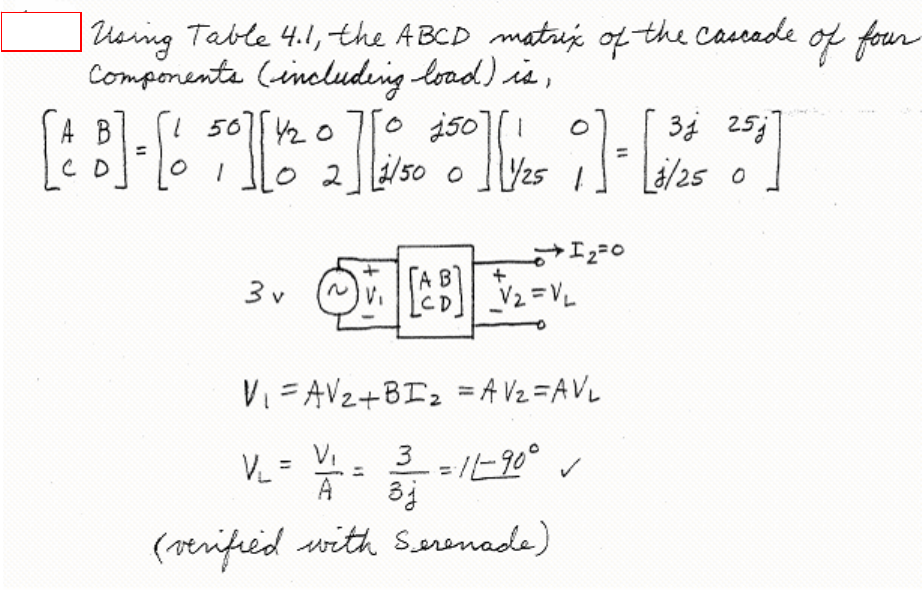 Using Table 4.1, the ABCD matrix of the cascade of four
components (including load) is,
[A B; C D] = [1 50; 0 1] [1/2 0; 0 2] [0 j50; j/50 0] [1 0; 1/25 1] = [3j 25j; j/25 0]
3 v ~ + V₁ − [A B; C D] + V₂ = V_L − → I₂=0
V₁ = AV₂ + BI₂ = AV₂ = AV_L
V_L = V₁/A = 3/3j = 1∠-90° ✓
(verified with Serenade)